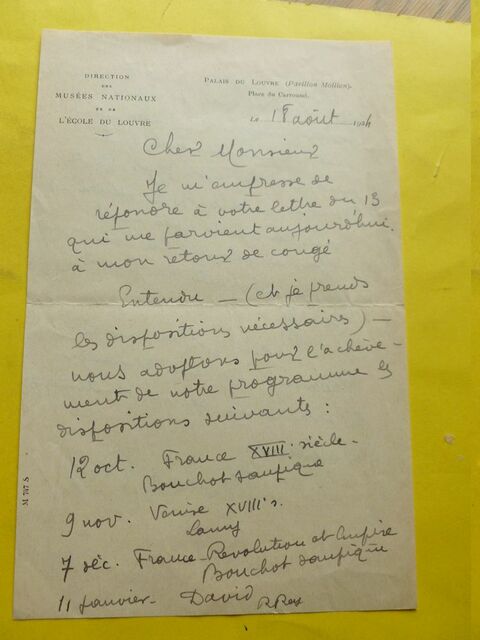 DIRECTION
DES
MUSÉES NATIONAUX
ET DE
L'ÉCOLE DU LOUVRE
PALAIS DU LOUVRE (Pavillon Mollien).
Place du Carrousel
Le 18 août 192
Cher Monsieur
Je m'empresse de
répondre à votre lettre du 13
qui me parvient aujourd'hui.
à mon retour de congé
Entendu — (et je prends
les dispositions nécessaires) —
nous adoptons pour l'achève-
ment de notre programme les
dispositions suivantes :
12 oct. France XVIII siècle.
Bouchot Saupique
9 nov. Venise XVIII s.
Lamy
7 déc. France - Révolution et Empire
Bouchot Saupique
11 janvier. David
R Rey
M 707 S